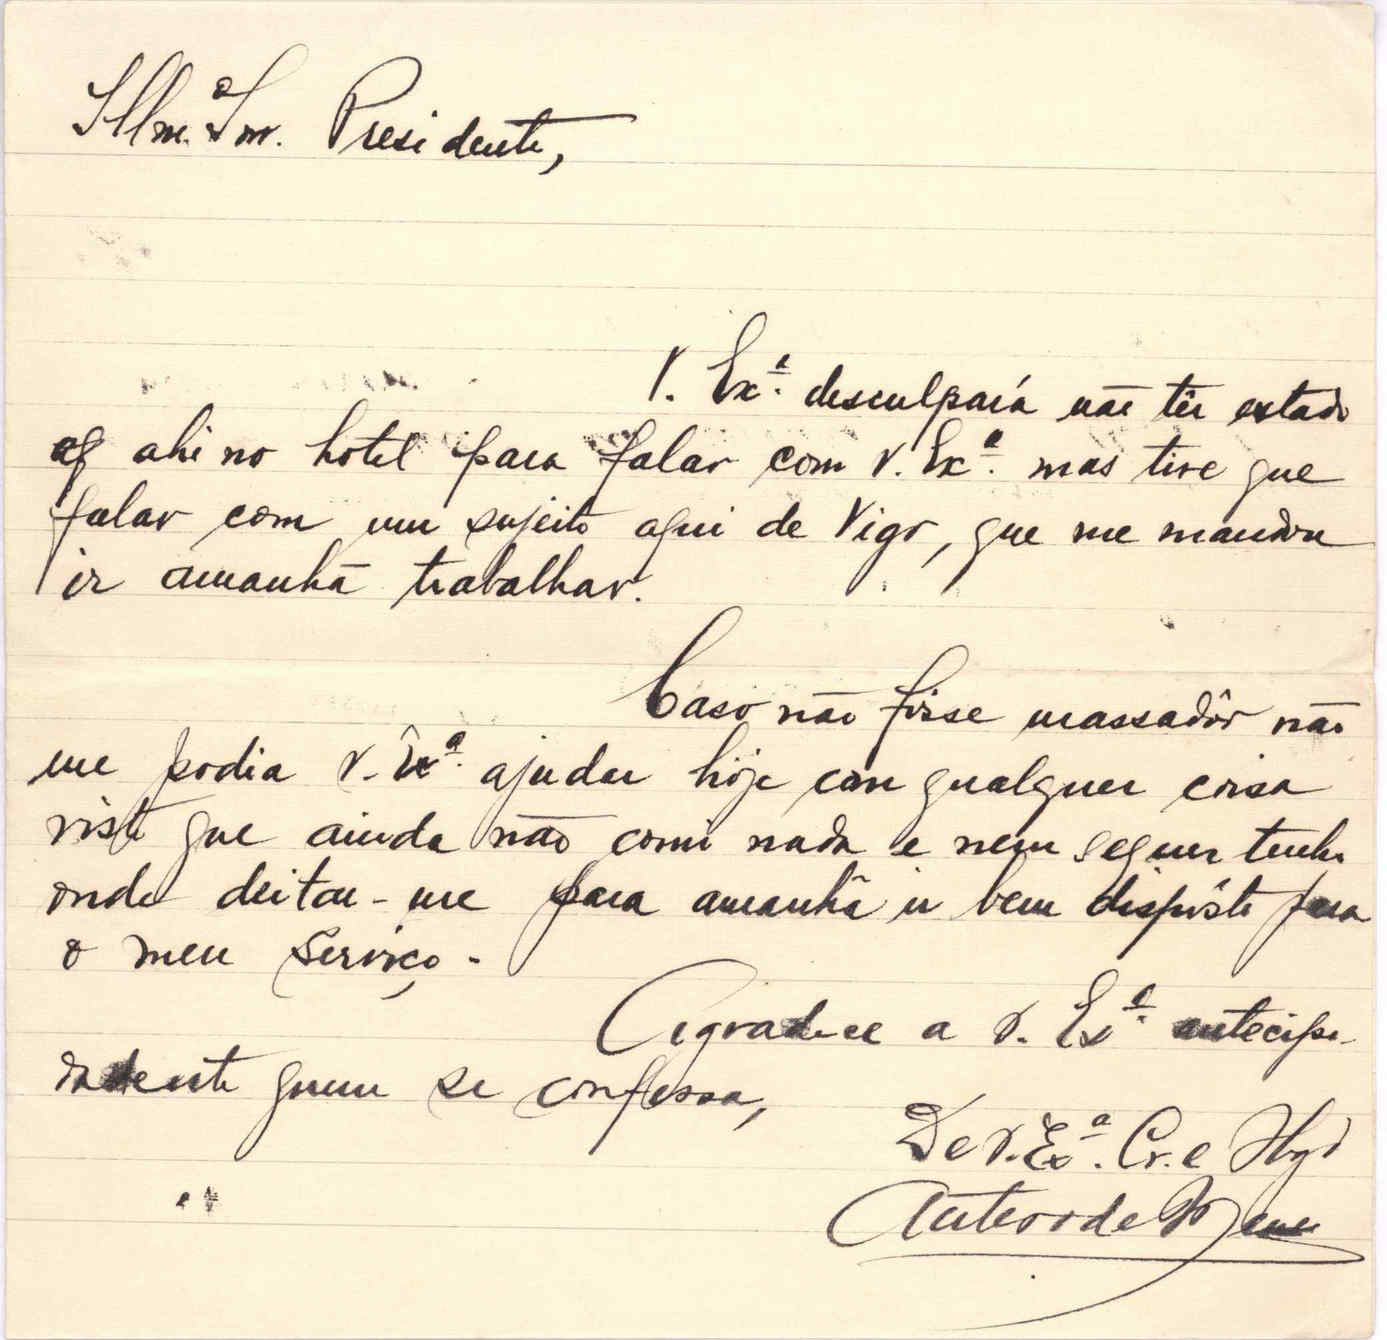 Illm.º Snr. Presidente,
V. Ex.ª desculpará não têr estado
ahi no hotel para falar com V. Ex.ª mas tive que
falar com um sujeito aqui de Vigo, que me mandou
ir amanhã trabalhar.
Caso não fôsse massadôr não
me podia V. Ex.ª ajudar hoje com qualquer coisa
visto que ainda não comi nada e nem sequer tenho
onde deitar-me para amanhã ir bem dispôsto para
o meu serviço -
Agradece a V. Ex.ª antecipa-
damente quem se confessa,
De V. Ex.ª Cr. e Obgd
Antero de